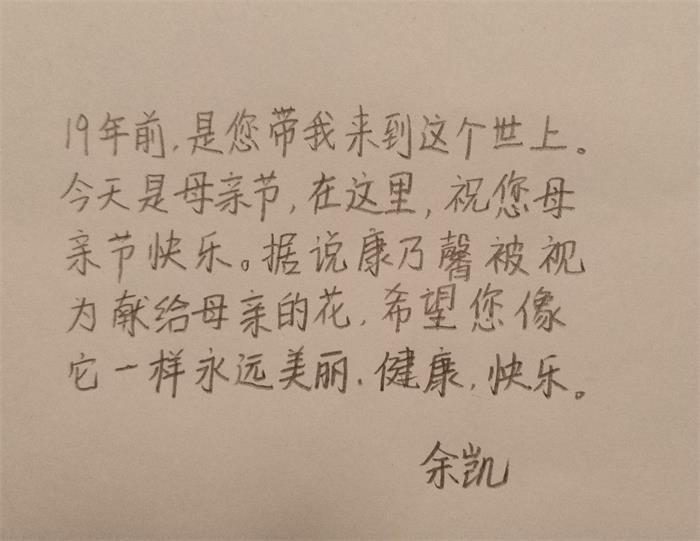 19年前,是您带我来到这个世上。
今天是母亲节,在这里,祝您母
亲节快乐。据说康乃馨被视
为献给母亲的花,希望您像
它一样永远美丽、健康,快乐。
余凯